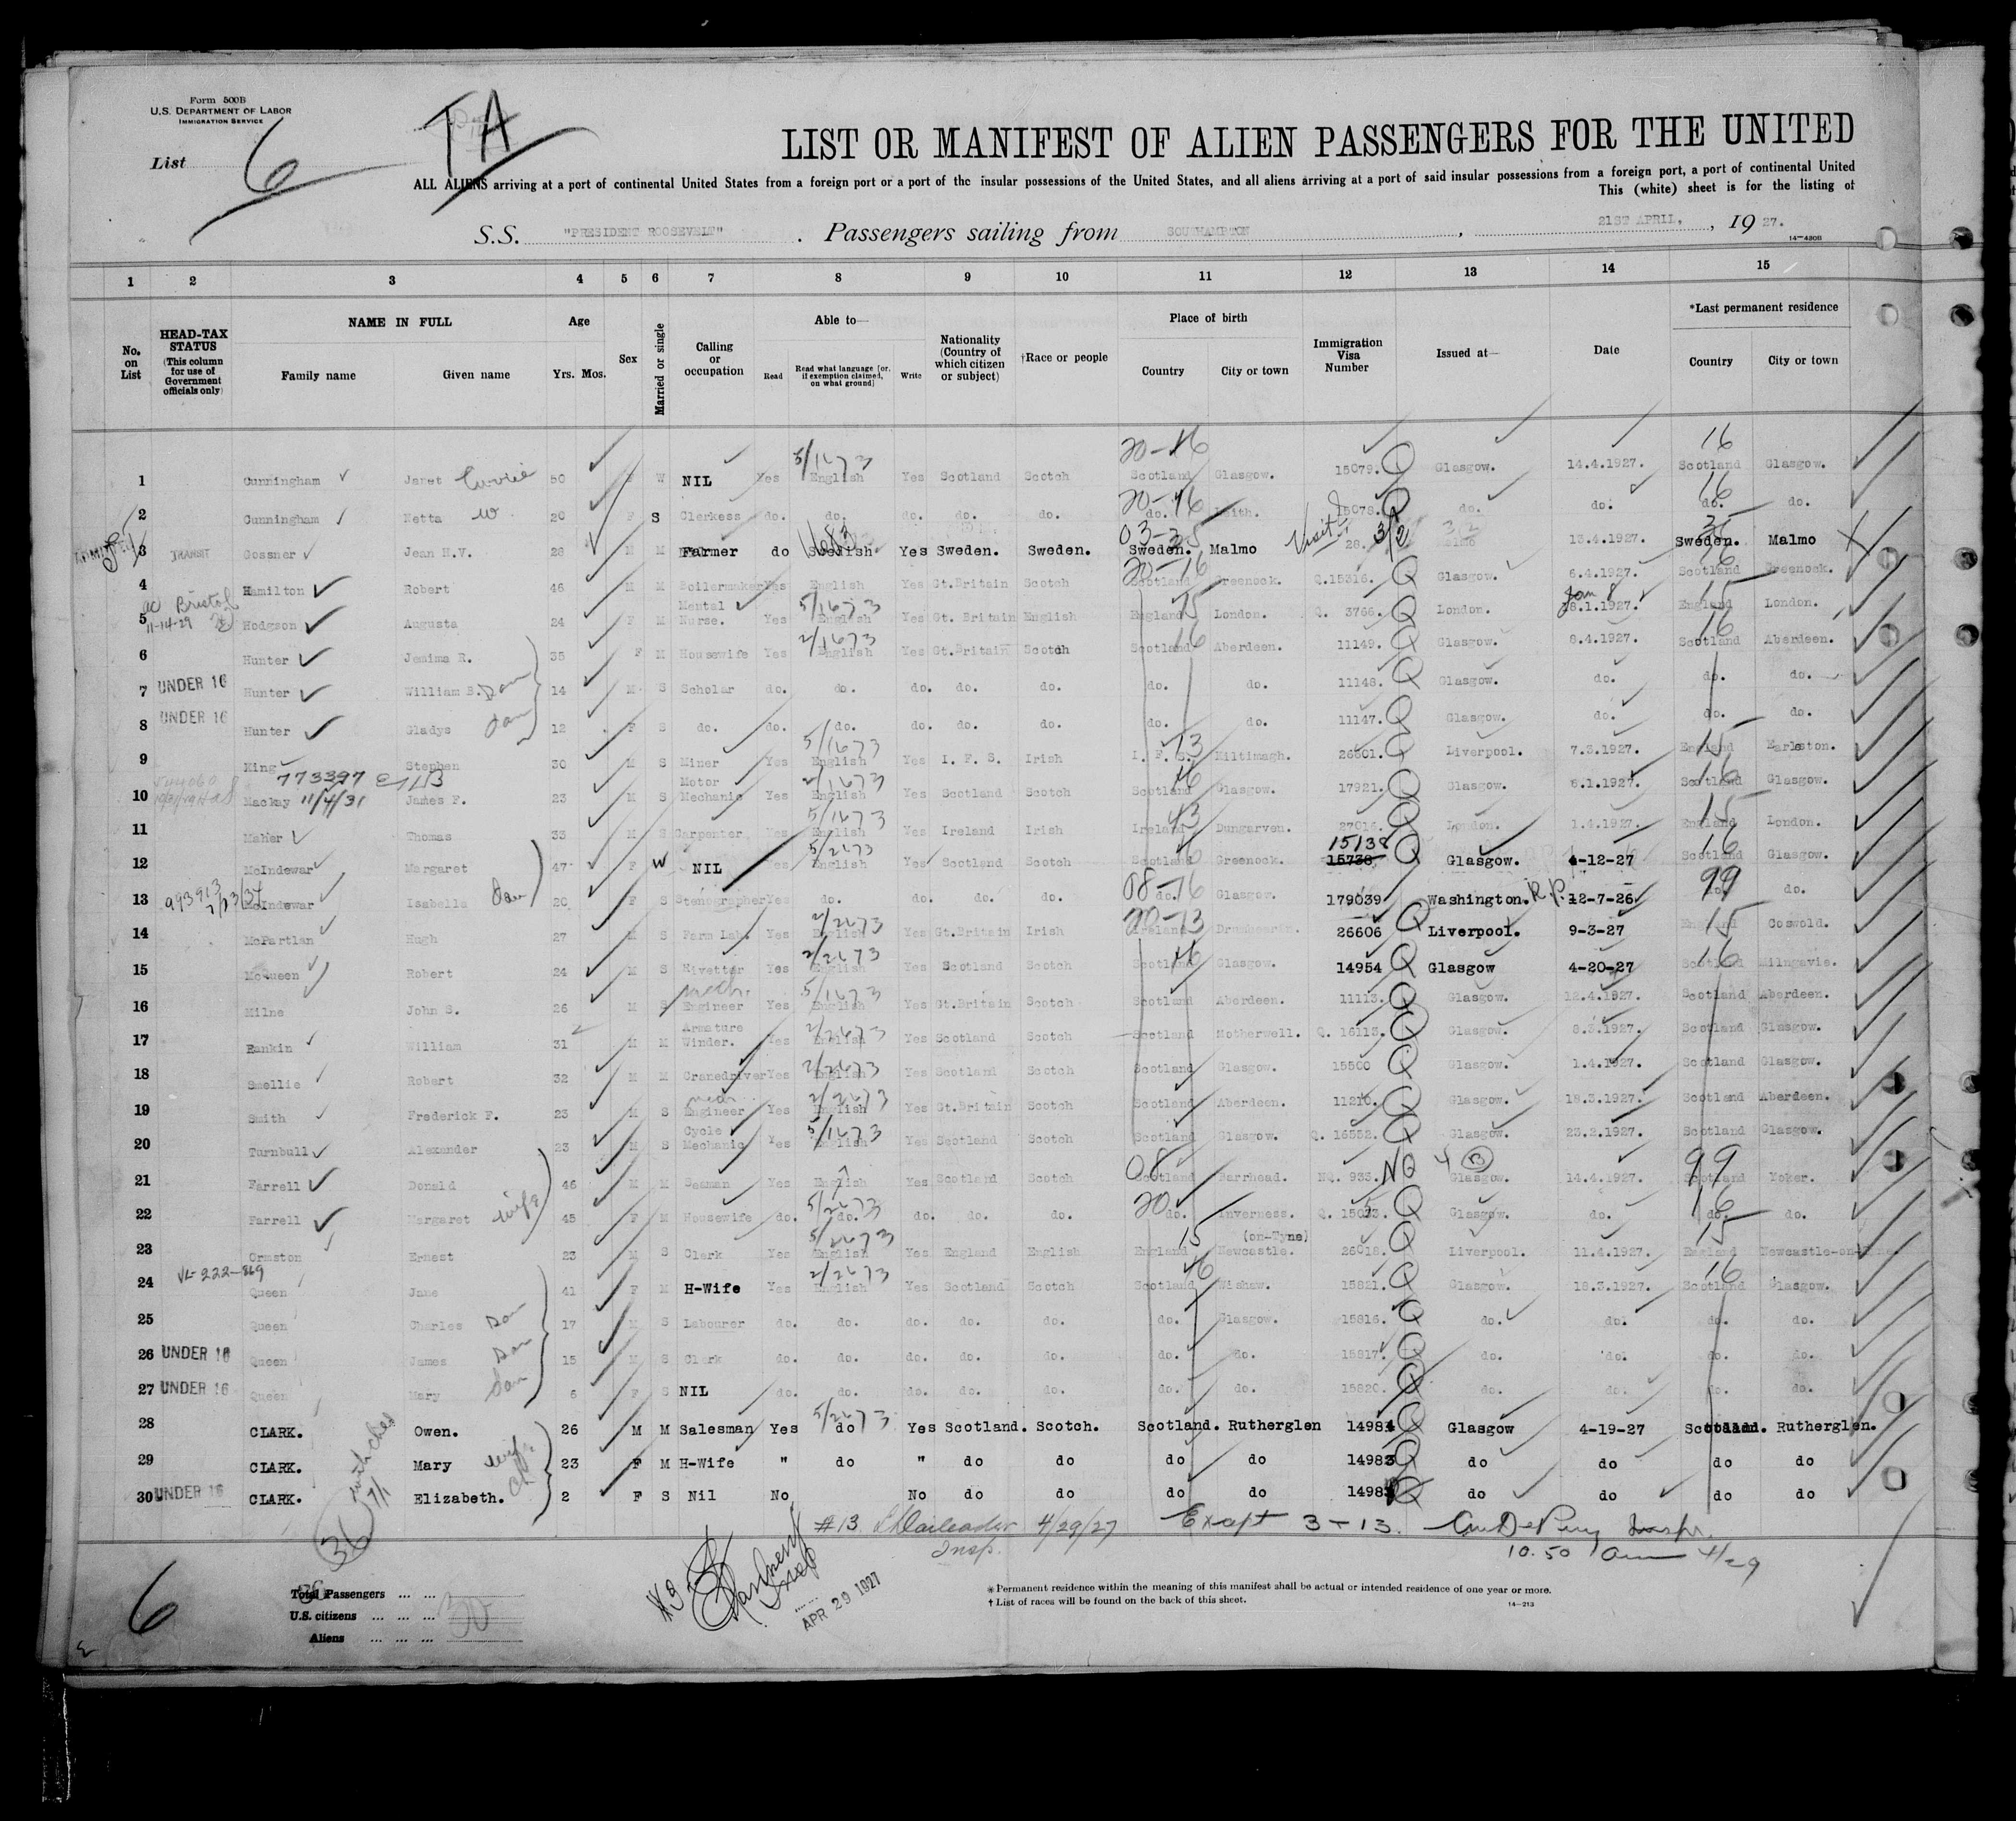 Form 500B
U.S. DEPARTMENT OF LABOR
IMMIGRATION SERVICE
List 6
TA
LIST OR MANIFEST OF ALIEN PASSENGERS FOR THE UNITED
ALL ALIENS arriving at a port of continental United States from a foreign port or a port of the insular possessions of the United States, and all aliens arriving at a port of said insular possessions from a foreign port, a port of continental United
This (white) sheet is for the listing of
S.S. "PRESIDENT ROOSEVELT" . Passengers sailing from SOUTHAMPTON , 21ST APRIL, , 19 27.
14—430B
1 2 3 4 5 6 7 8 9 10 11 12 13 14 15
No. on List
HEAD-TAX STATUS (This column for use of Government officials only)
NAME IN FULL Family name Given name
Age Yrs. Mos.
Sex
Married or single
Calling or occupation
Able to— Read Read what language [or, if exemption claimed, on what ground] Write
Nationality (Country of which citizen or subject)
†Race or people
Place of birth Country City or town
Immigration Visa Number
Issued at—
Date
*Last permanent residence Country City or town
1 Cunningham Janet Currie 50 F W NIL Yes English 5/1673 Yes Scotland Scotch 20-16 Scotland Glasgow. 15079. Q Glasgow. 14.4.1927. 16 Scotland Glasgow.
2 Cunningham Netta W 20 F S Clerkess do. do. do. do. do. 20-16 do. Leith. 15078. Q do. do. 16 do. do.
3 TRANSIT Gossner Jean H.V. 28 M M Farmer do Swedish Yes Sweden. Sweden. 03-35 Sweden. Malmo Visit 28. 3/2 Malmo 13.4.1927. Sweden. Malmo
4 Hamilton Robert 46 M M Boilermaker Yes English Yes Gt.Britain Scotch 20-16 Scotland Greenock. Q.15316. Q Glasgow. 6.4.1927. 16 Scotland Greenock.
ac Bristol 11-14-29
5 Hodgson Augusta 24 F M Mental Nurse. Yes English 5/1673 Yes Gt. Britain English England 15 London. Q. 3766. Q London. Jan 8 8.1.1927. 15 England London.
6 Hunter Jemima R. 35 F M Housewife Yes English 2/1673 Yes Gt.Britain Scotch Scotland 16 Aberdeen. 11149. Q Glasgow. 8.4.1927. 16 Scotland Aberdeen.
7 UNDER 16 Hunter William B. 14 M S Scholar do. do. do. do. do. do. do. 11148. Q Glasgow. do. do. do.
8 UNDER 16 Hunter Gladys 12 F S do. do. do. do. do. do. do. do. 11147. Q Glasgow. do. do. do.
9 King Stephen 30 M S Miner Yes English 5/1673 Yes I. F. S. Irish I. F. S. 13 Kiltimagh. 26601. Q Liverpool. 7.3.1927. 15 England Earleston.
773397
10 Mackay 11/4/31 James F. 23 M S Motor Mechanic Yes English 2/1673 Yes Scotland Scotch Scotland 16 Glasgow. 17921. Q Glasgow. 6.1.1927. 16 Scotland Glasgow.
11 Maher Thomas 33 M S Carpenter Yes English 5/1673 Yes Ireland Irish Ireland 13 Dungarven. 27016. Q London. 1.4.1927. 15 England London.
12 McIndewar Margaret 47 F W NIL Yes English 5/2673 Yes Scotland Scotch Scotland Greenock. 15138 15738. Q Glasgow. 4-12-27 16 Scotland Glasgow.
13 McIndewar Isabella Dau 20 F S Stenographer Yes do. do. do. do. 08-16 do. Glasgow. 179039 Washington. R.P. 12-7-26 99 do. do.
14 McPartlan Hugh 27 M S Farm Lab. Yes English 2/2673 Yes Gt.Britain Irish 20-13 Ireland 26606 Q Liverpool. 9-3-27 15 England Coswold.
15 McQueen Robert 24 M S Rivetter Yes English 2/2673 Yes Scotland Scotch Scotland 16 Glasgow. 14954 Q Glasgow 4-20-27 16 Scotland Milngavie.
16 Milne John S. 26 M S Mech. Engineer Yes English 5/1673 Yes Gt.Britain Scotch Scotland Aberdeen. 11113. Q Glasgow. 12.4.1927. Scotland Aberdeen.
17 Rankin William 31 M M Armature Winder. Yes English 2/2673 Yes Scotland Scotch Scotland Motherwell. Q. 16113. Q Glasgow. 8.3.1927. Scotland Glasgow.
18 Smellie Robert 32 M M Cranedriver Yes English 2/2673 Yes Scotland Scotch Scotland Glasgow. 15500 Q Glasgow. 1.4.1927. Scotland Glasgow.
19 Smith Frederick F. 23 M S Engineer Yes English 2/2673 Yes Gt.Britain Scotch Scotland Aberdeen. 11216. Q Glasgow. 18.3.1927. Scotland Aberdeen.
20 Turnbull Alexander 23 M S Cycle Mechanic Yes English 5/1673 Yes Scotland Scotch Scotland Glasgow. Q. 16552. Q Glasgow. 23.2.1927. Scotland Glasgow.
21 Farrell Donald 46 M M Seaman Yes English Yes Scotland Scotch 08 Scotland Barrhead. NQ. 933. NQ 4 B Glasgow. 14.4.1927. 99 Scotland Yoker.
22 Farrell Margaret wife 45 F M Housewife do. do. 5/2673 do. do. do. 20 do. Inverness. Q. 15073. Q Glasgow. do. 16 do. do.
23 Ormston Ernest 23 M S Clerk Yes English 5/2673 Yes England English England 15 (on-Tyne) Newcastle. 26018. Q Liverpool. 11.4.1927. 15 England Newcastle-on-Tyne.
VL 222-869
24 Queen Jane 41 F M H-Wife Yes English 2/2673 Yes Scotland Scotch Scotland 16 Wishaw. 15821. Q Glasgow. 18.3.1927. 16 Scotland Glasgow.
25 Queen Charles Son 17 M S Labourer do. do. do. do. do. do. Glasgow. 15816. Q do. do. do. do.
26 UNDER 16 Queen James Son 15 M S Clerk do. do. do. do. do. do. do. 15817. Q do. do. do. do.
27 UNDER 16 Queen Mary Dau 6 F S NIL do. do. do. do. do. do. do. 15820. Q do. do. do. do.
28 CLARK. Owen. 26 M M Salesman Yes do 5/2673 Yes Scotland. Scotch. Scotland. Rutherglen 14984 Q Glasgow 4-19-27 Scotland. Rutherglen.
29 CLARK. Mary wife 23 F M H-Wife " do " do do do do 14983 Q do do do do
30 UNDER 16 CLARK. Elizabeth. Ch 2 F S Nil No No do do do do Q do do do do
36
#13 4/29/27 Exapt 3-13. Inspr.
Insp. 10.50 am 4/29
6
Total Passengers ... ...
U.S. citizens ... ... ... 30
Aliens ... ... ...
#3 Insp
APR 29 1927
* Permanent residence within the meaning of this manifest shall be actual or intended residence of one year or more.
† List of races will be found on the back of this sheet.
14—213